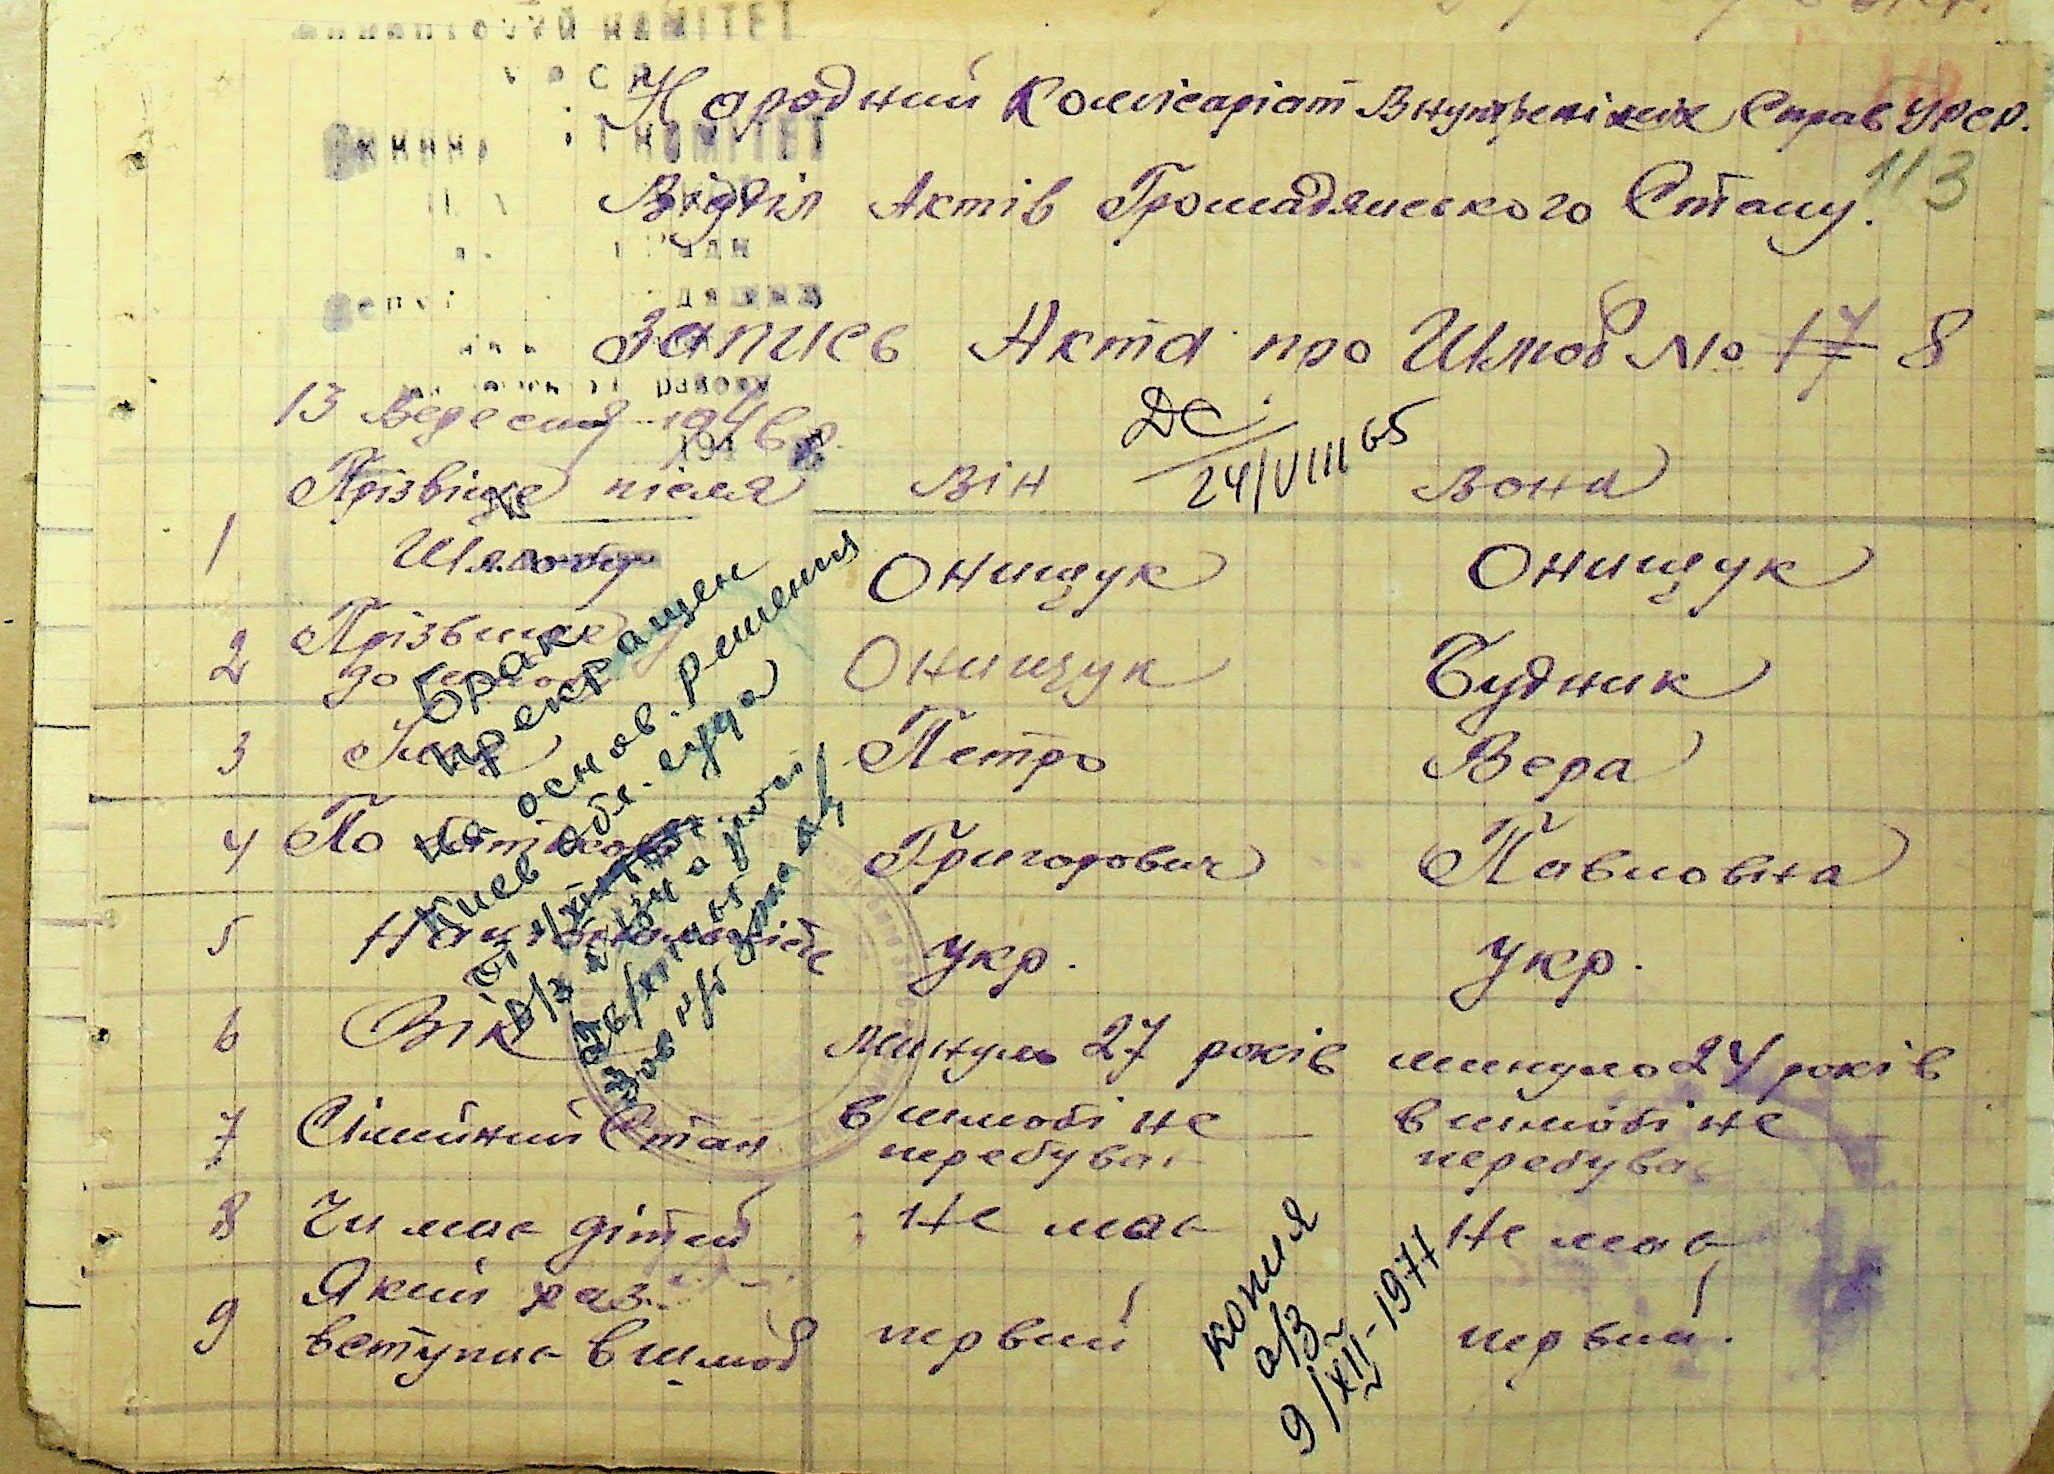 Народний Комісаріат Внутрішніх Справ УРСР.
113
Відділ Актів Громадянського Стану.
Запись Акта про Шлюб № 17 8
13 Вересня 1946 р.
ДС
24/VIII 65
Прізвіще після Він Вона
1 Шлюбу Онищук Онищук
2 Прізвище до Онищук Будник
3 Імя Петро Вера
4 По батькові Григорович Павловна
5 Національність Укр. Укр.
6 Вік минуло 27 років минуло 24 років
7 Сімийний Стан в шлюбі не перебував в шлюбі не перебува
8 Чи має дітей Не має Не має
9 Який раз вступає в шлюб первий первий.
Брак
прекращен
на основ. решения
Киев обл. суда
копия
а/з
9/XII-1971